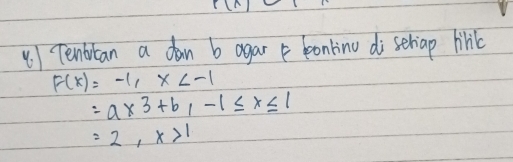 4.) Tentukan a dan b agar F kontinu di setiap titik
F(x) = -1, x < -1
= ax3 + b, -1 ≤ x ≤ 1
= 2, x > 1